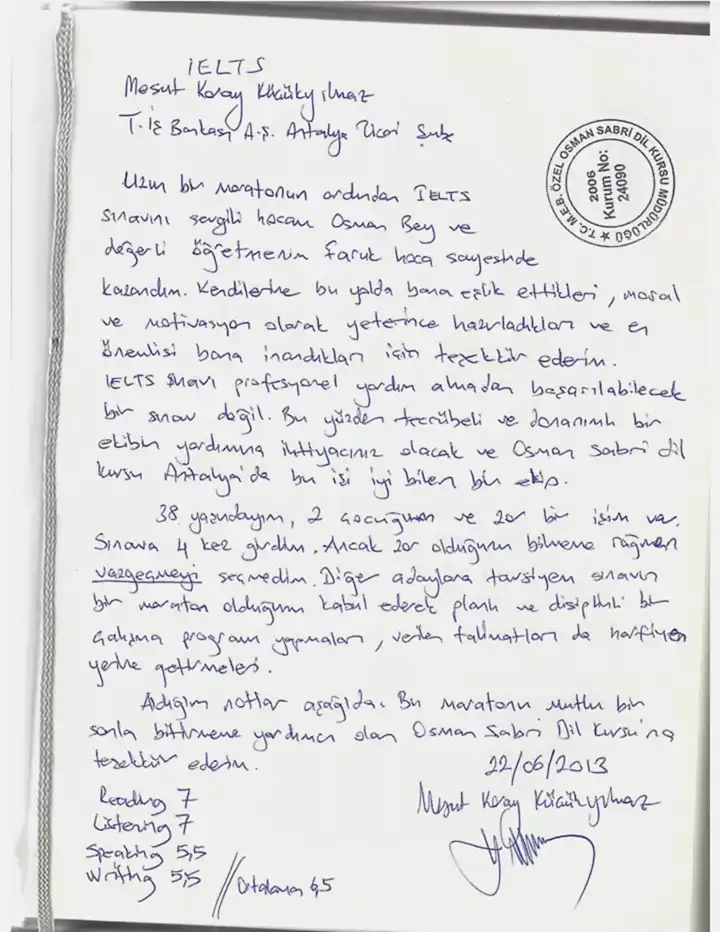 IELTS
Mesut Koray Küçükyılmaz
T. İş Bankası A.Ş. Antalya Ticari Şube
T.C. M.E.B. ÖZEL OSMAN SABRİ DİL KURSU MÜDÜRLÜĞÜ ★
2006
Kurum No:
24090
Uzun bir maratonun ardından IELTS
sınavını sevgili hocam Osman Bey ve
değerli öğretmenim Faruk hoca sayesinde
kazandım. Kendilerine bu yolda bana eşlik ettikleri, moral
ve motivasyon olarak yeterince hazırladıkları ve en
önemlisi bana inandıkları için teşekkür ederim.
IELTS sınavı profesyonel yardım almadan başarılabilecek
bir sınav değil. Bu yüzden tecrübeli ve donanımlı bir
ekibin yardımına ihtiyacınız olacak ve Osman Sabri dil
kursu Antalya'da bu işi iyi bilen bir ekip.
38 yaşındayım, 2 çocuğum ve zor bir işim var.
Sınava 4 kez girdim. Ancak zor olduğunu bilmeme rağmen
vazgeçmeyi seçmedim. Diğer adaylara tavsiyem sınavın
bir maraton olduğunu kabul ederek planlı ve disiplinli bir
çalışma programı yapmaları, verilen talimatları da harfiyen
yerine getirmeleri.
Aldığım notlar aşağıda. Bu maratonu mutlu bir
sonla bitirmeme yardımcı olan Osman Sabri Dil Kursu'na
teşekkür ederim.
22/06/2013
Mesut Koray Küçükyılmaz
Reading 7
Listening 7
Speaking 5,5
Writing 5,5 // Ortalama 6,5